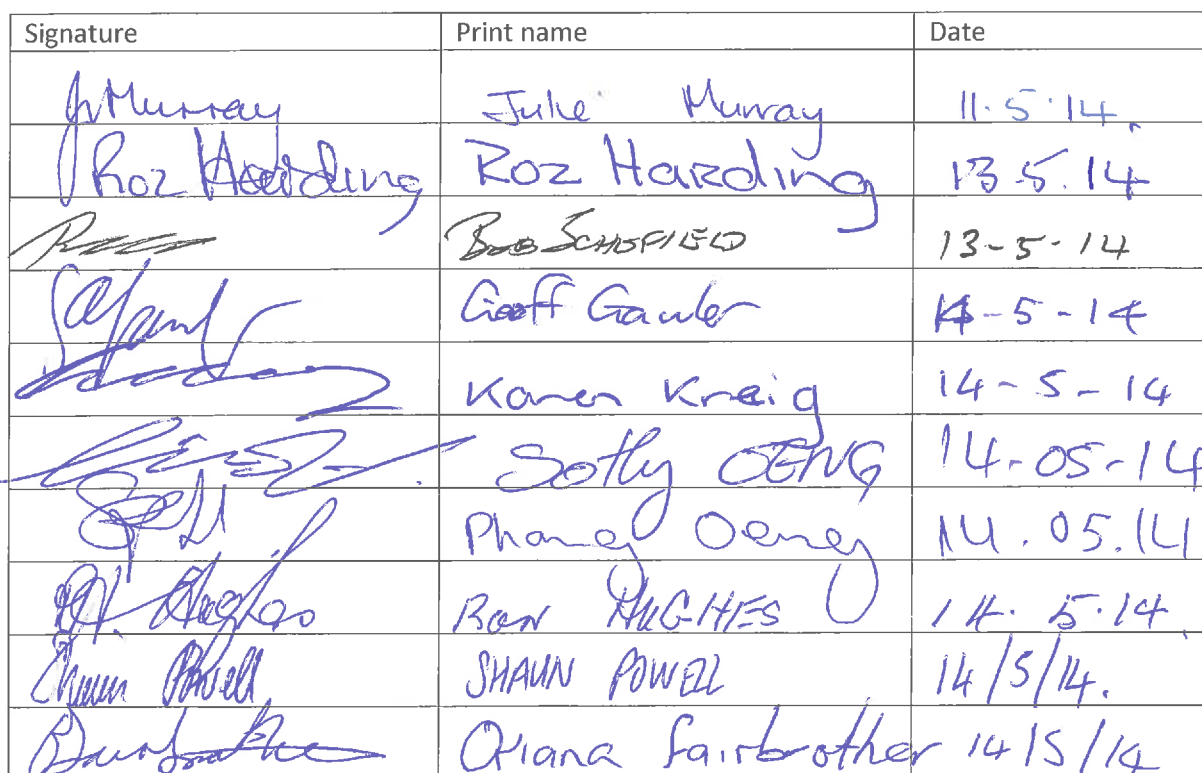 Signature Print name Date
JMurray Julie Murray 11.5.14.
Roz Harding Roz Harding 13.5.14
Bob SCHOFIELD 13-5-14
Geoff Gawler 14-5-14
Karen Kreig 14-5-14
Sothy OENG 14-05-14
Phaney Oeng 14.05.14
Hughes RON HUGHES 14.5.14
Shaun Powell SHAUN POWELL 14/5/14.
Oriana fairbrother 14/5/14